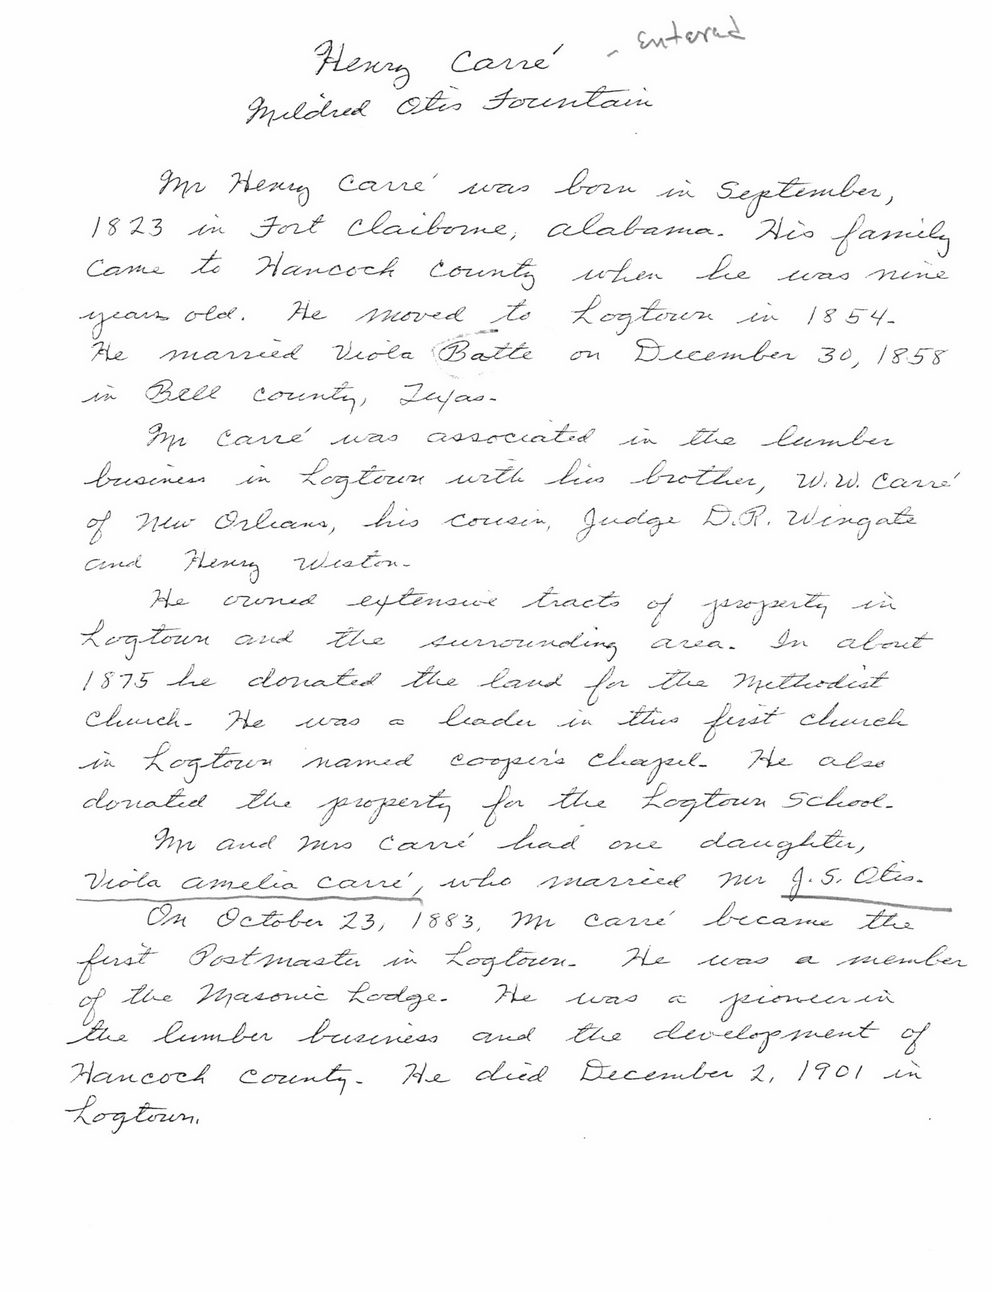 - Entered
Henry Carré
Mildred Otis Fountain
Mr Henry Carré was born in September,
1823 in Fort Claiborne, Alabama. His family
came to Hancock County when he was nine
years old. He moved to Logtown in 1854.
He married Viola Batte on December 30, 1858
in Bell County, Texas.
Mr Carré was associated in the lumber
business in Logtown with his brother, W.W. Carré
of New Orleans, his cousin, Judge D.R. Wingate
and Henry Weston.
He owned extensive tracts of property in
Logtown and the surrounding area. In about
1875 he donated the land for the Methodist
Church. He was a leader in this first church
in Logtown named Cooper's Chapel. He also
donated the property for the Logtown School.
Mr and Mrs Carré had one daughter,
Viola Amelia Carré, who married Mr J.S. Otis.
On October 23, 1883, Mr Carré became the
first Postmaster in Logtown. He was a member
of the Masonic Lodge. He was a pioneer in
the lumber business and the development of
Hancock County. He died December 2, 1901 in
Logtown.